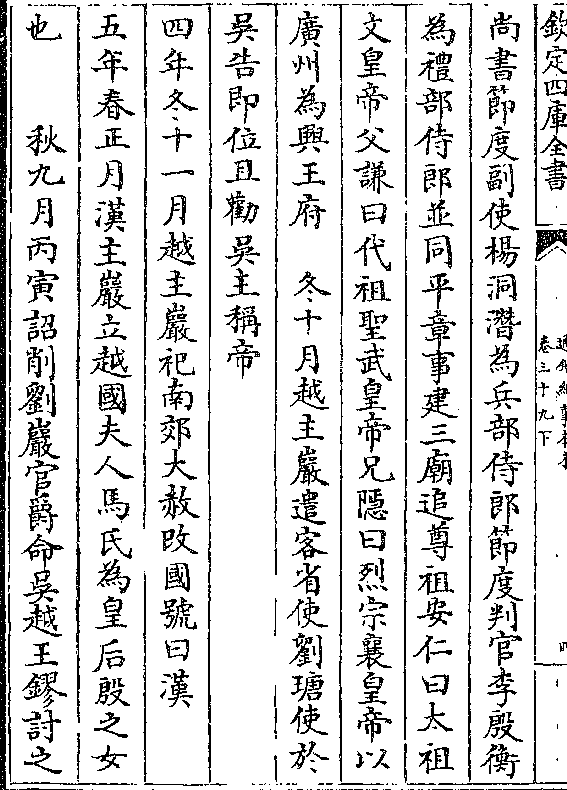 欽定四庫全書
卷三十九下
尚書節度副使楊洞潛為兵部侍郎節度判官李殷衡
為禮部侍郎並同平章事建三廟追尊祖安仁曰太祖
文皇帝父謙曰代祖聖武皇帝兄隱曰烈宗襄皇帝以
廣州為興王府　冬十月越主巖遣客省使劉瑭使於
吳告即位且勸吳主稱帝
四年冬十一月越主巖祀南郊大赦改國號曰漢
五年春正月漢主巖立越國夫人馬氏為皇后殷之女
也　秋九月丙寅詔削劉巖官爵命吳越王鏐討之